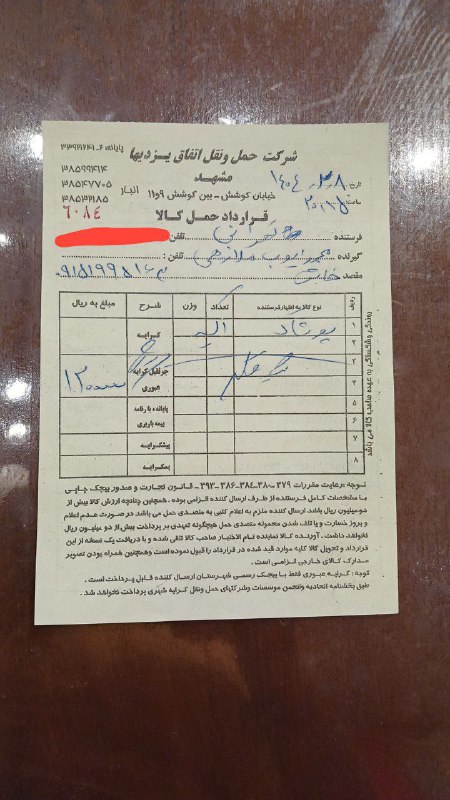 شرکت حمل ونقل اتفاق یزدیها
مشهد
خیابان کوشش - بین کوشش ۹و۱۱
قرارداد حمل کالا
پایانه:
۳۸۵۹۹۴۱۴
۳۸۵۴۷۷۰۵
۳۸۵۳۲۱۸۵
انبار
۶۰۸۴
تاریخ ۱۴۰۴
ساعت
فرستنده تلفن
گیرنده تلفن:
مقصد خاش
ردیف نوع کالا به اظهار فرستنده تعداد وزن شرح مبلغ به ریال
۱ پوشاک کرایه
۲
۳ جرثقیل کرایه
۴ عبوری
۵ پایانه بارنامه
۶ بیمه باربری
۷ پیشکرایه
۸ پسکرایه
روندگی وشکستگی به عهده صاحب کالا می باشد
توجه: رعایت مقررات ۳۷۹-۳۸۰-۳۸۴-۳۸۶-۳۹۳ - قانون تجارت و صدور بیجک چاپی
با مشخصات کامل فرستنده از طرف ارسال کننده الزامی بوده . همچنین چنانچه ارزش کالا بیش از
دو میلیون ریال باشد ارسال کننده ملزم به اعلام کتبی به متصدی حمل می باشد در صورت عدم اعلام
و بروز خسارت و یا تلف شدن محموله متصدی حمل هیچگونه تعهدی بر پرداخت بیش از دو میلیون ریال
نخواهد داشت. آورنده کالا نماینده تام الاختیار صاحب کالا تلقی شده و با دریافت یک نسخه از این
قرارداد و تحویل کالا کلیه موارد قید شده در قرارداد را قبول نموده است وهمچنین همراه بودن تصویر
مدارک کالای خارجی الزامی است.
توجه : کرایه عبوری فقط با بیجک رسمی شهرستان ارسال کننده قابل پرداخت است .
طبق بخشنامه اتحادیه وانجمن موسسات وشرکتهای حمل ونقل کرایه شهری پرداخت نخواهد شد .